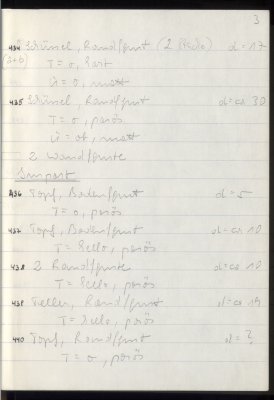 3
434 Schüssel, Randfrgmt (2 Stücke) d = 17
(a+b) T = o, hart
Ü = o, matt
435 Schüssel, Randfrgmt d = ca 30
T = o, porös
Ü = ob, matt
2 Wandfrgmte
Import
436 Topf, Bodenfrgmt d = 5
T = o, porös
437 Topf, Bodenfrgmt d = ca 10
T = hello, porös
438 2 Randfrgmte d = ca 10
T = hello, porös
439 Teller, Randfrgmt d = ca 19
T = hello, porös
440 Topf, Randfrgmt d = ?
T = o, porös